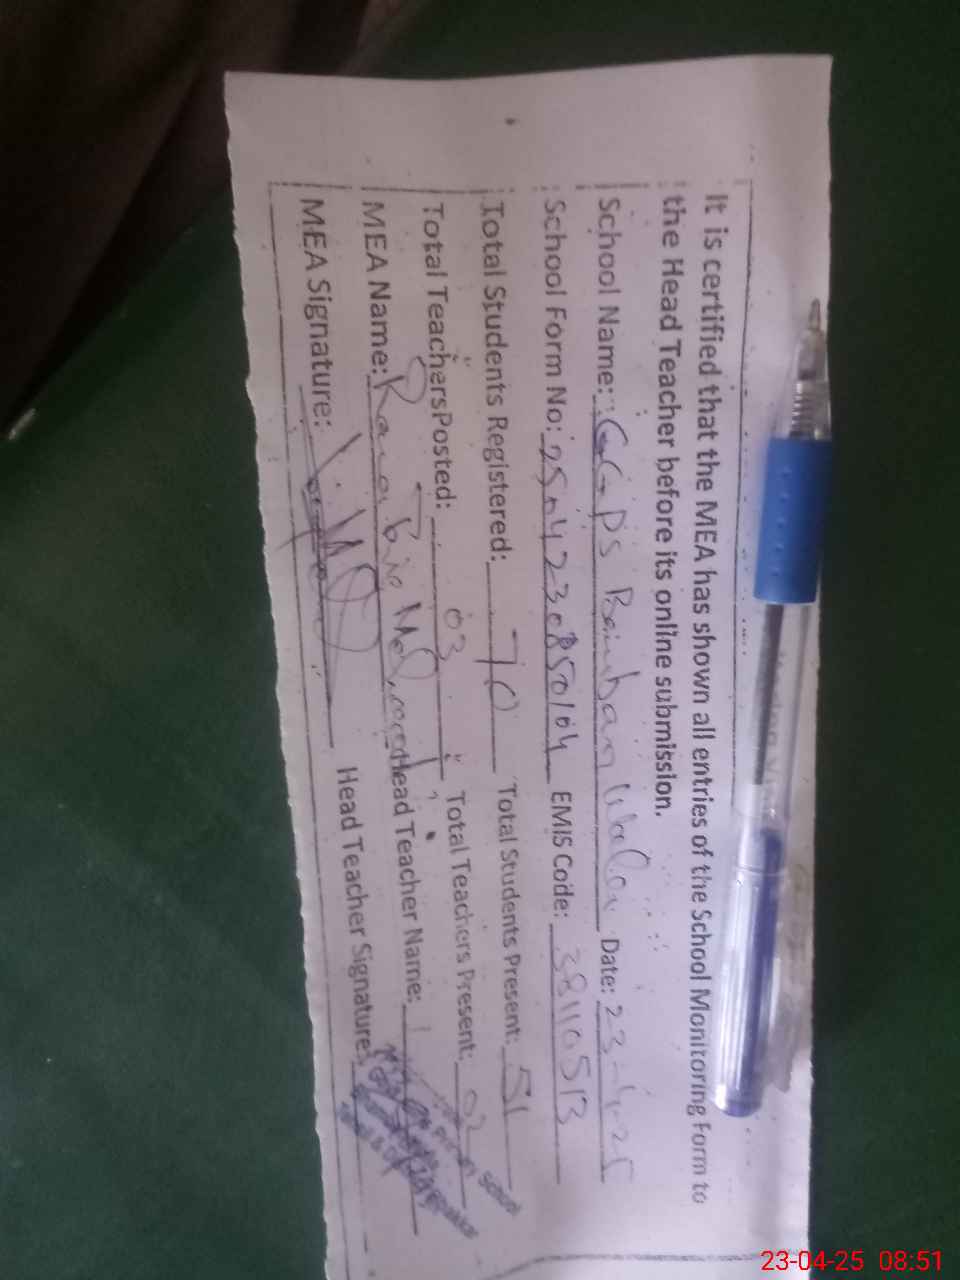 It is certified that the MEA has shown all entries of the School Monitoring Form to
the Head Teacher before its online submission.
School Name: GGPS Date: 23-4-25
School Form No: 2504230850104 EMIS Code: 38110513
Total Students Registered: 70 Total Students Present: 51
Total Teachers Posted: 03 Total Teachers Present: 03
MEA Name: Rana Head Teacher Name:
MEA Signature: Head Teacher Signature:
School
23-04-25 08:51